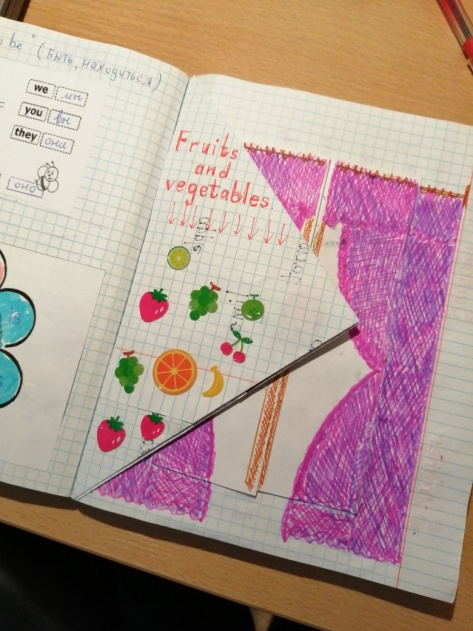 o be" (быть, находиться)
we мы
you вы
they они
оно
Fruits
and
vegetables